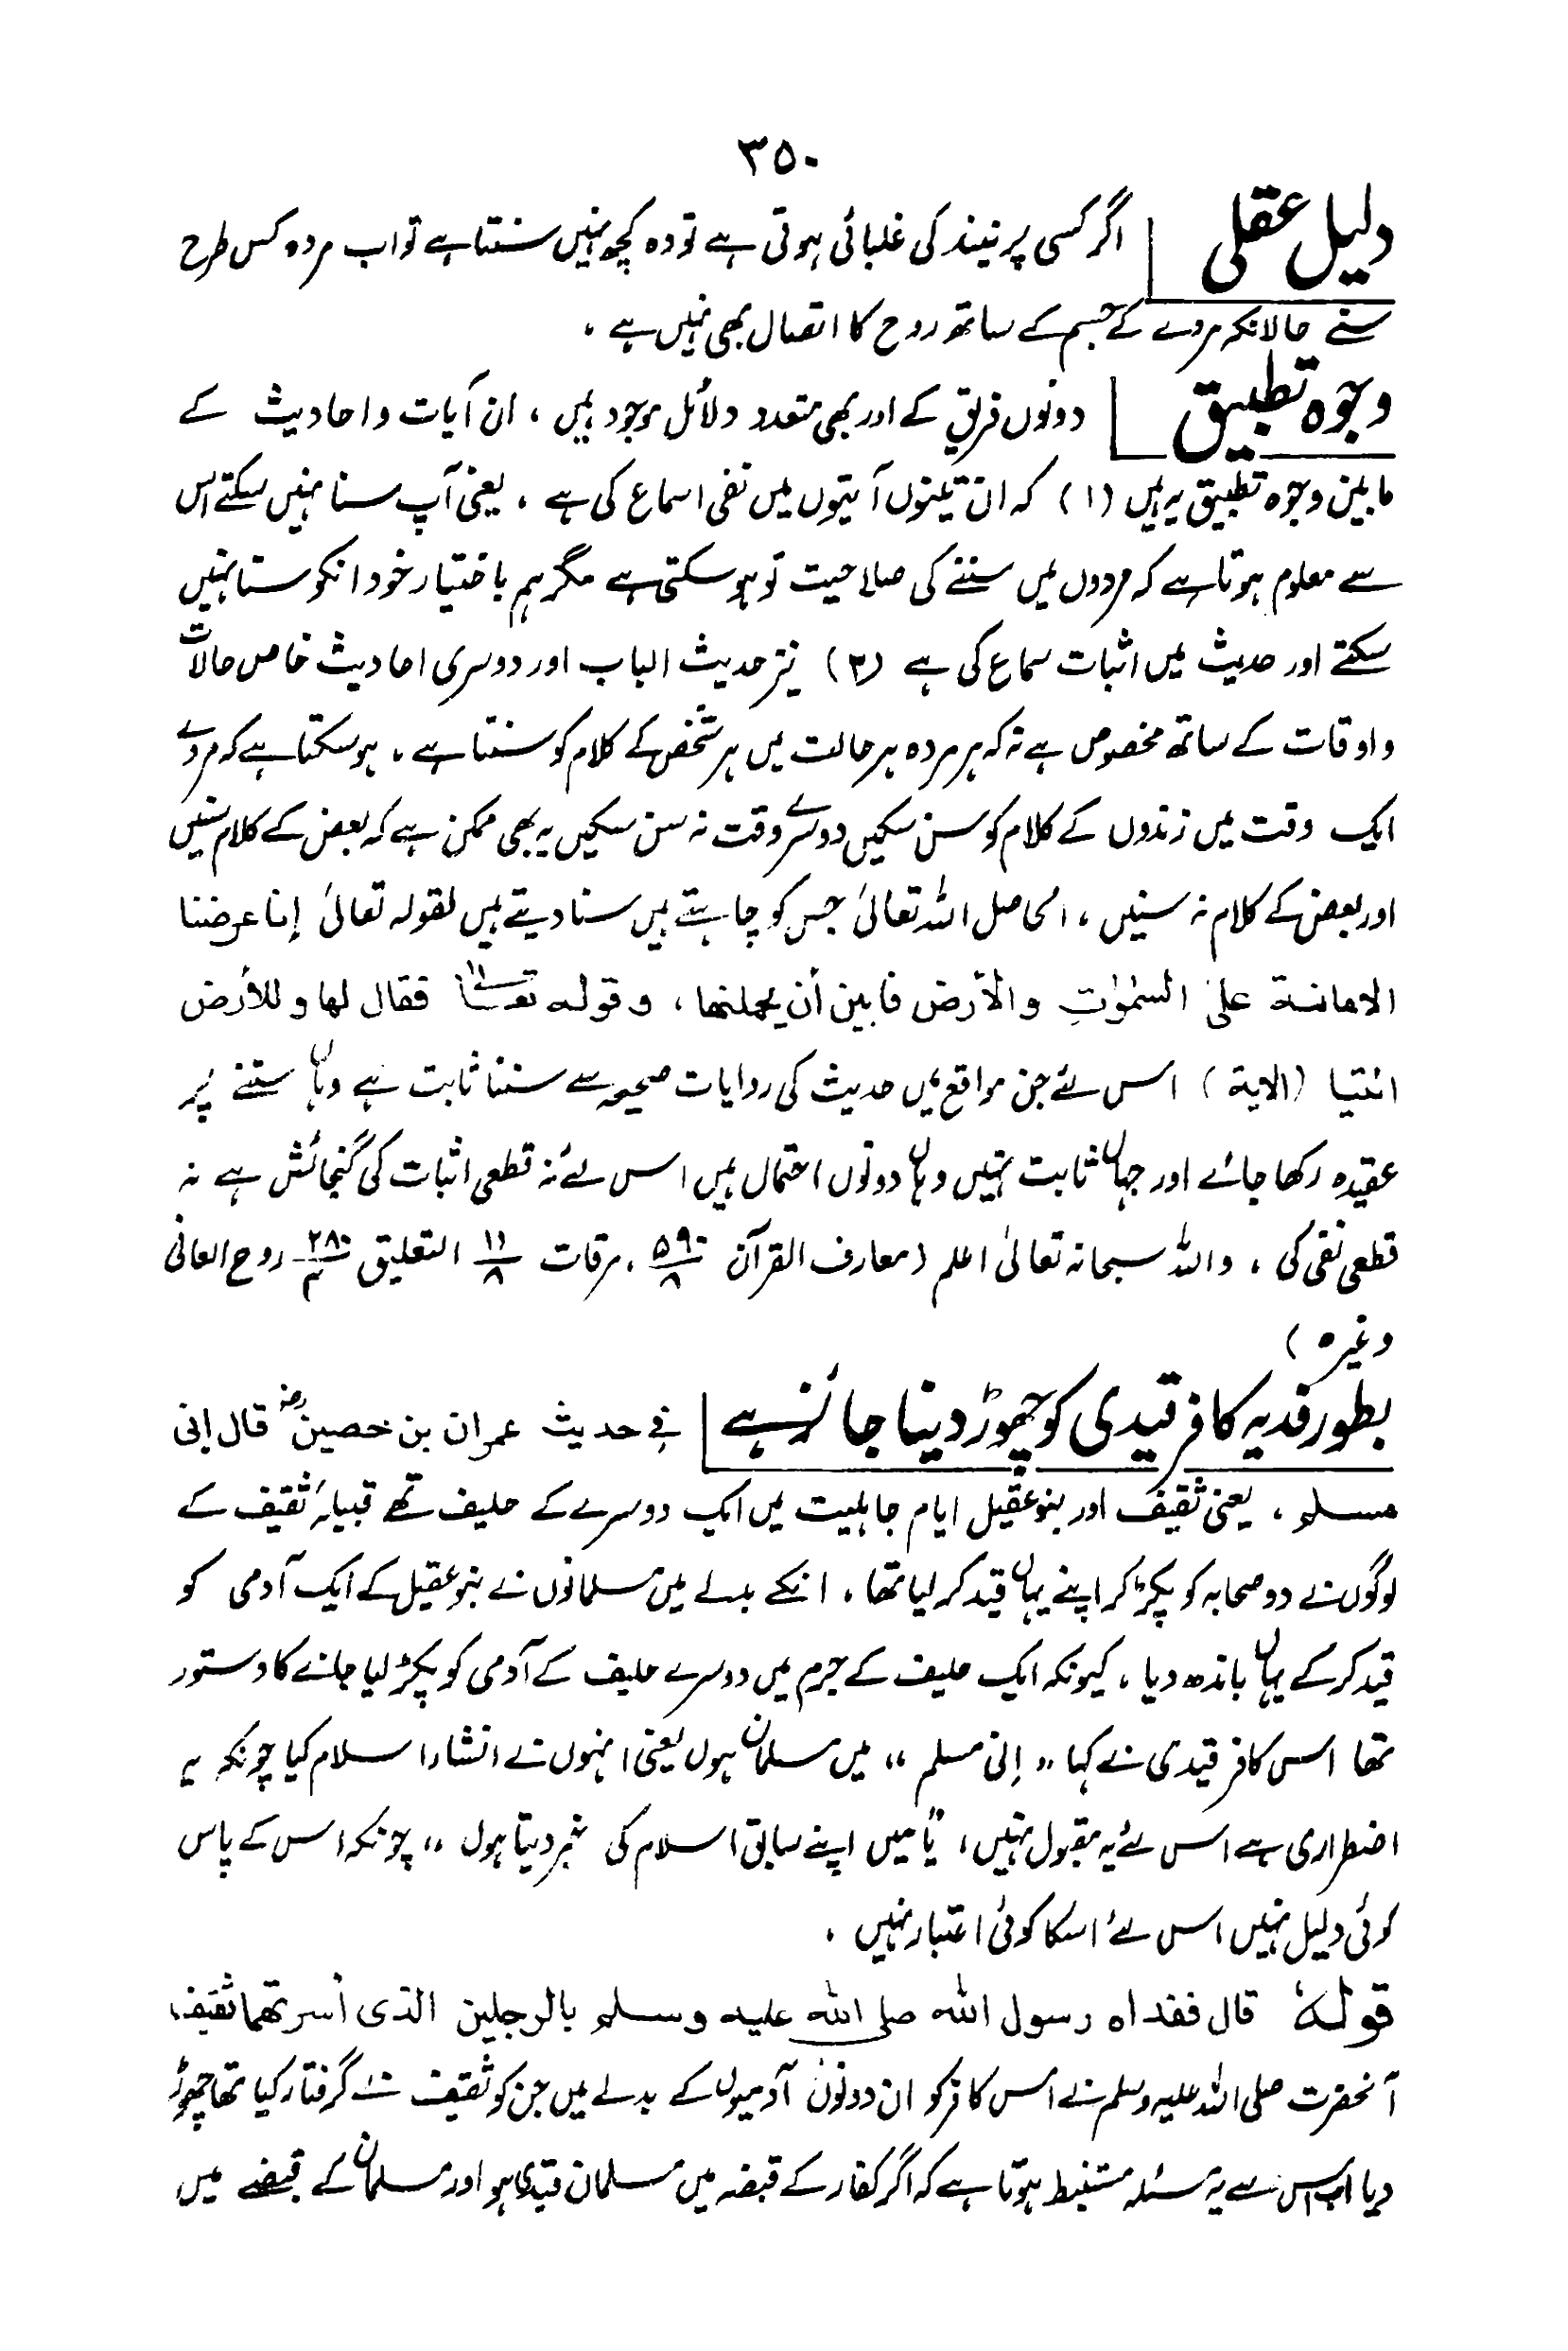 ۳۵۰
دلیل عقلی اگر کسی پر نیند کی غلبائی ہوتی ہے تو وہ کچھ نہیں سنتا ہے تو اب مردہ کس طرح
سنے حالانکہ مردے کے جسم کے ساتھ روح کا اتصال بھی نہیں ہے ،
وجوہ تطبیق دونوں فریق کے اور بھی متعدد دلائل موجود ہیں ، ان آیات واحادیث کے
مابین وجوہ تطبیق یہ ہیں (۱) کہ ان تینوں آیتوں میں نفی اسماع کی ہے ، یعنی آپ سنا نہیں سکتے اس
سے معلوم ہوتا ہے کہ مردوں میں سننے کی صلاحیت تو ہو سکتی ہے مگر ہم باختیار خود انکو سنا نہیں
سکتے اور حدیث میں اثبات سماع کی ہے (۲) نیز حدیث الباب اور دوسری احادیث خاص حالات
واوقات کے ساتھ مخصوص ہے نہ کہ ہر مردہ ہر حالت میں ہر شخص کے کلام کو سنتا ہے ، ہو سکتا ہے کہ مردے
ایک وقت میں زندوں کے کلام کو سن سکیں دوسرے وقت نہ سن سکیں یہ بھی ممکن ہے کہ بعض کے کلام سنیں
اور بعض کے کلام نہ سنیں ، الحاصل اللہ تعالیٰ جس کو چاہتے ہیں سنا دیتے ہیں لقولہ تعالیٰ إنا عرضنا
الامانة علی السمٰوٰتِ والأرض فابین أن یحملنھا ، وقولہ تعالیٰ فقال لھا وللأرض
ائتیا (الایة) اس لئے جن مواقع میں حدیث کی روایات صحیحہ سے سننا ثابت ہے وہاں سننے پر
عقیدہ رکھا جائے اور جہاں ثابت نہیں وہاں دونوں احتمال ہیں اس لئے نہ قطعی اثبات کی گنجائش ہے نہ
قطعی نفی کی ، واللہ سبحانہ تعالیٰ اعلم (معارف القرآن ۵۹۰/۸ ، مرقات ۱۱/۸ التعلیق ۲۸۰/۴ روح المعانی
وغیرہ )
بطور فدیہ کافر قیدی کو چھوڑ دینا جائز ہے فی حدیث عمران بن حصین رضؓ قال إنی
مسلم ، یعنی ثقیف اور بنو عقیل ایام جاہلیت میں ایک دوسرے کے حلیف تھے قبیلۂ ثقیف کے
لوگوں نے دو صحابہ کو پکڑ کر اپنے یہاں قید کر لیا تھا ، انکے بدلے میں مسلمانوں نے بنو عقیل کے ایک آدمی کو
قید کر کے یہاں باندھ دیا ، کیونکہ ایک حلیف کے جرم میں دوسرے حلیف کے آدمی کو پکڑ لیا جانے کا دستور
تھا اس کافر قیدی نے کہا " إنی مسلم " میں مسلمان ہوں یعنی انہوں نے انشاء اسلام کیا چونکہ یہ
اضطراری ہے اس لئے یہ مقبول نہیں ، یا " میں اپنے سابق اسلام کی خبر دیتا ہوں " چونکہ اس کے پاس
کوئی دلیل نہیں اس لئے اسکا کوئی اعتبار نہیں ،
قولہٗ قال ففداہ رسول اللہ صلی اللہ علیہ وسلم بالرجلین الذی أسرتھما ثقیف ،
آنحضرت صلی اللہ علیہ وسلم نے اس کافر کو ان دونوں آدمیوں کے بدلے میں جن کو ثقیف نے گرفتار کیا تھا چھوڑ
دیا اب اس سے یہ مسئلہ مستنبط ہوتا ہے کہ اگر کفار کے قبضہ میں مسلمان قیدی ہو اور مسلمان کے قبضے میں